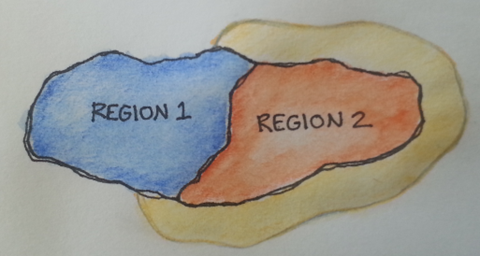 REGION 1
REGION 2